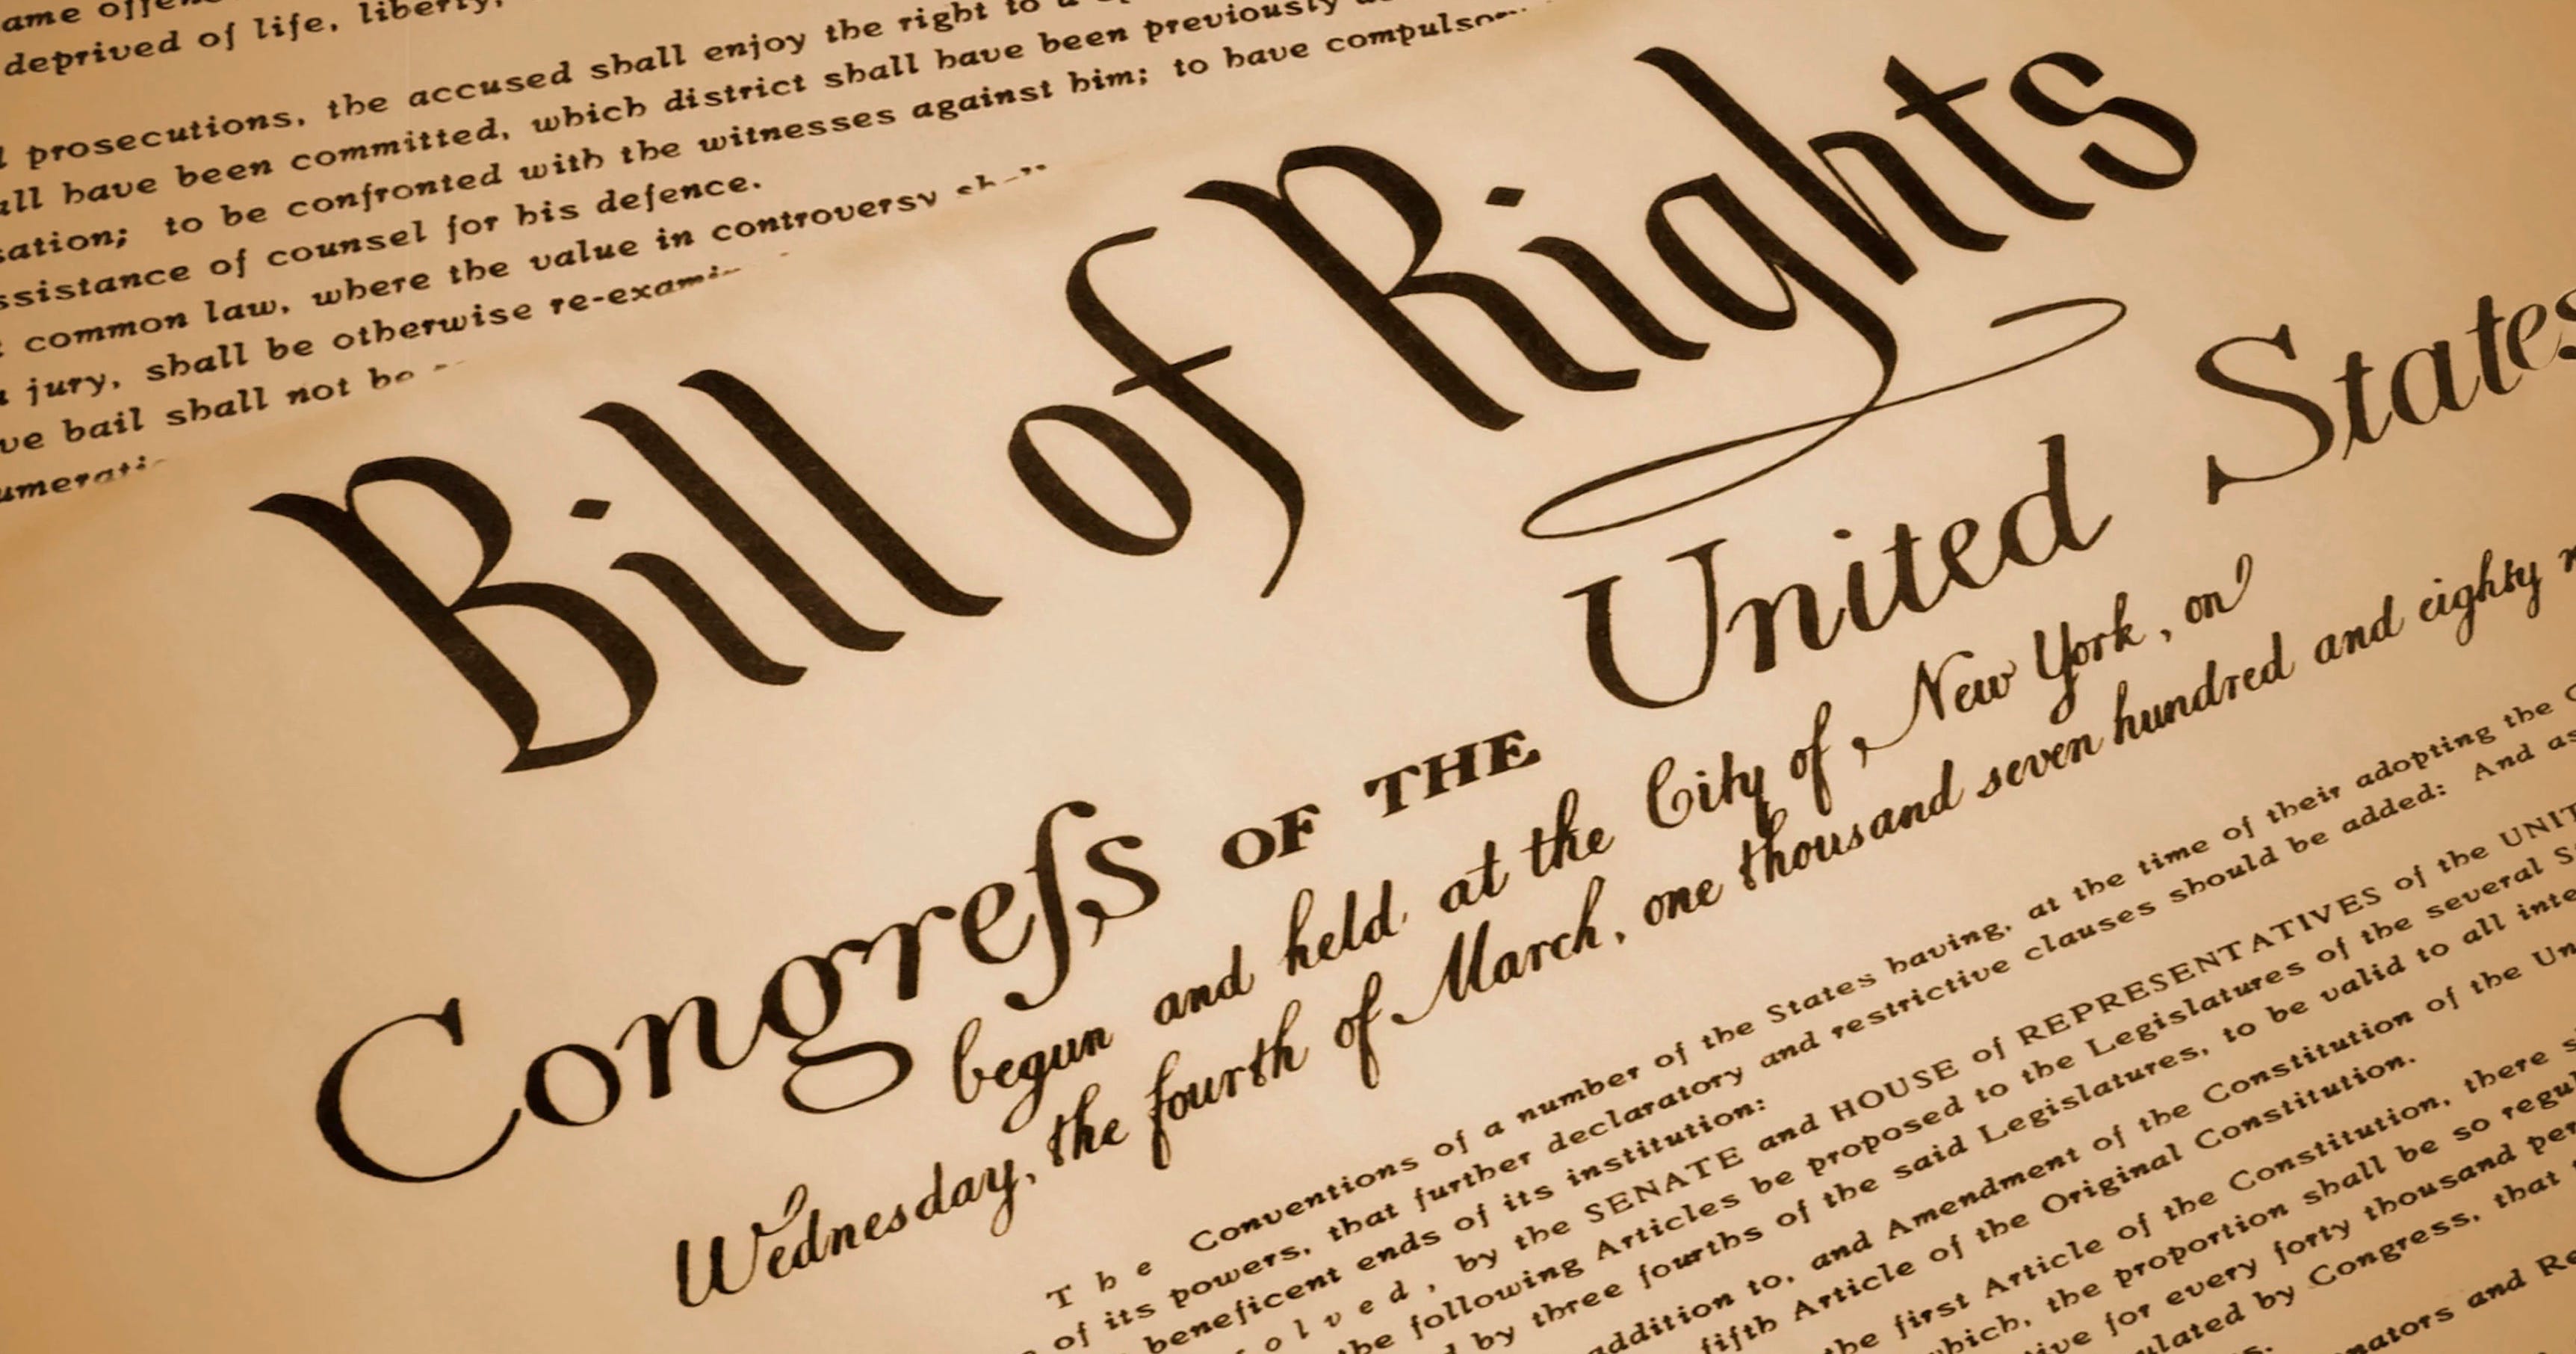 deprived of life, liberty,
prosecutions, the accused shall enjoy the right to a
have been committed, which district shall have been previously
to be confronted with the witnesses against him; to have
of counsel for his defence.
common law, where the value in controversy
jury, shall be otherwise
bail shall not be
Bill of Rights
Congreſs OF THE United States
begun and held at the City of New York, on
Wednesday, the fourth of March, one thousand seven hundred and eighty
The Conventions of a number of the States having, at the time of their adopting the
of its powers, that further declaratory and restrictive clauses should be added: And as
beneficent ends of its institution:
by the SENATE and HOUSE of REPRESENTATIVES of the
following Articles be proposed to the Legislatures of the several
by three fourths of the said Legislatures, to be valid to all
addition to, and Amendment of the Constitution of the
fifth Article of the Original Constitution.
the first Article of the Constitution, there
the proportion shall be so
for every forty thousand
by Congress, that
and